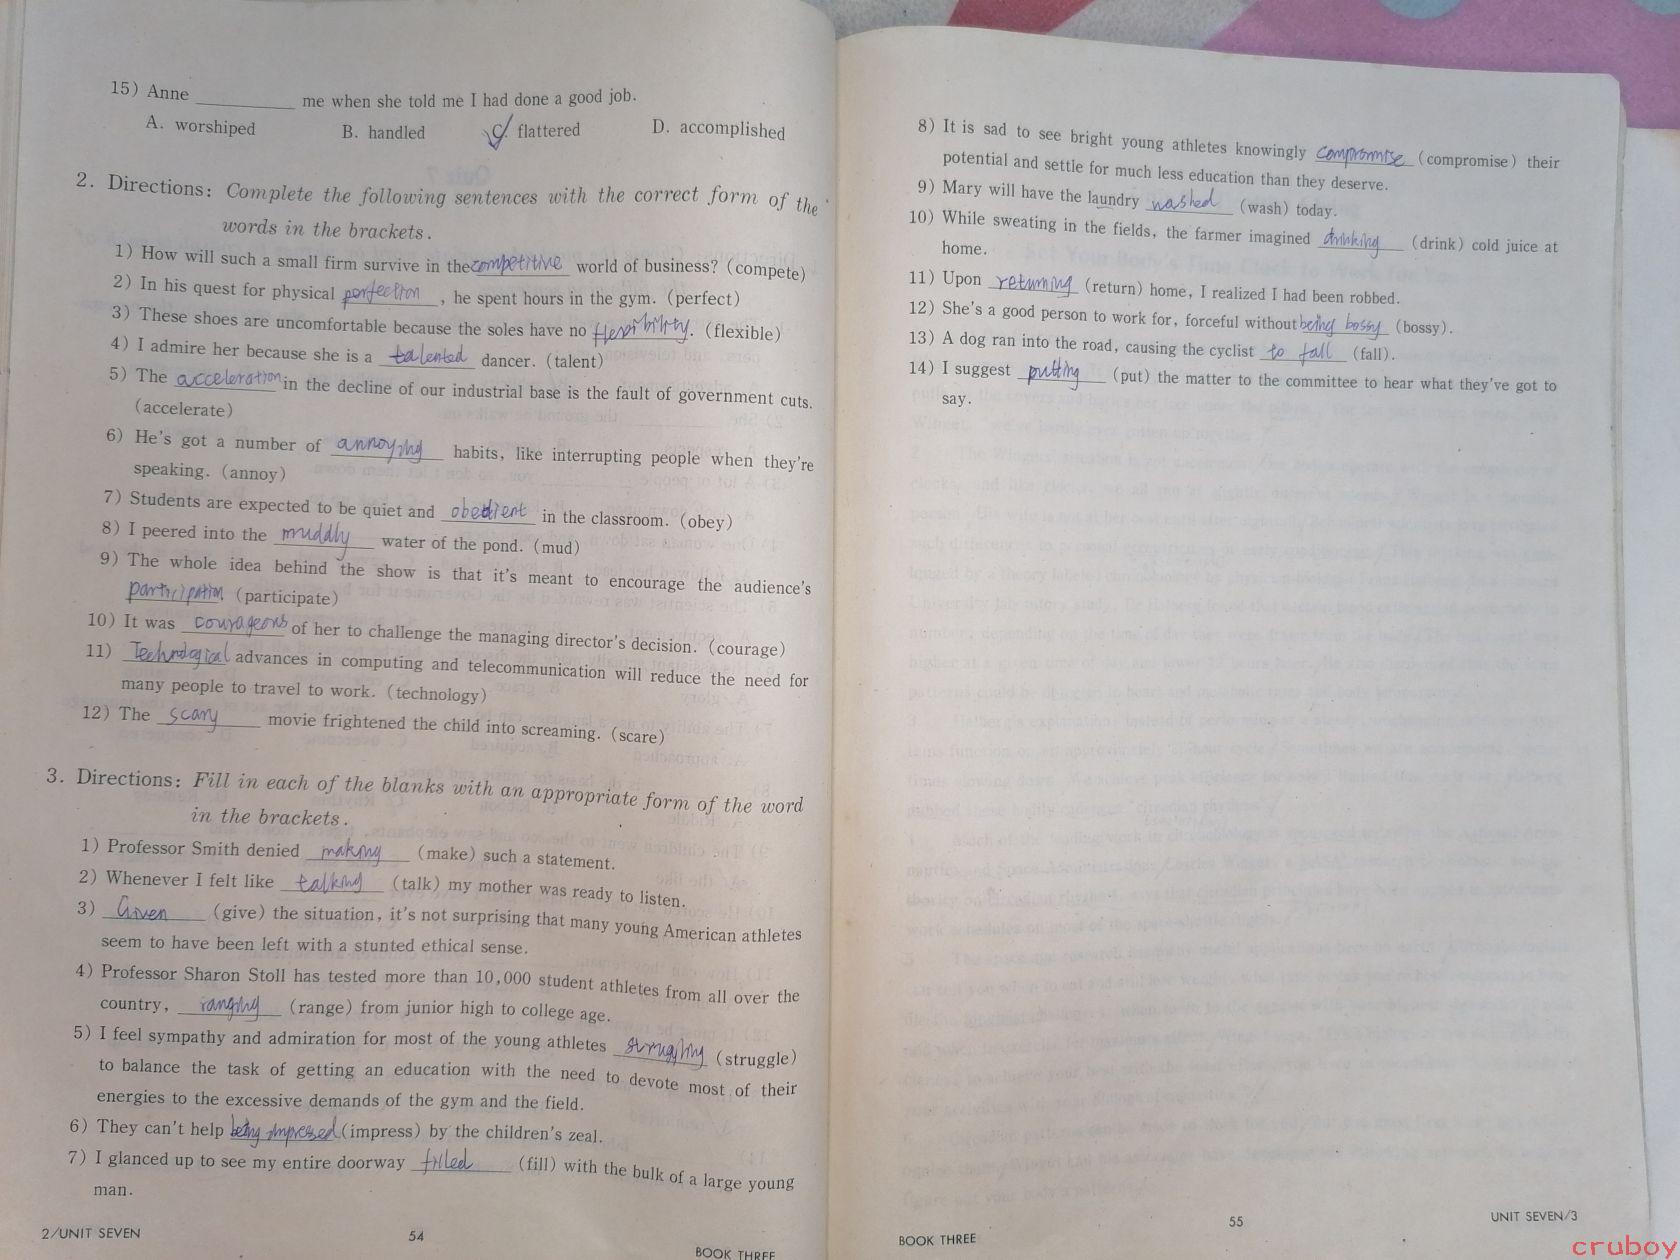 15) Anne __________ me when she told me I had done a good job.
A. worshiped B. handled C. flattered D. accomplished
2. Directions: Complete the following sentences with the correct form of the
words in the brackets.
1) How will such a small firm survive in the competitive world of business? (compete)
2) In his quest for physical perfection, he spent hours in the gym. (perfect)
3) These shoes are uncomfortable because the soles have no flexibility. (flexible)
4) I admire her because she is a talented dancer. (talent)
5) The acceleration in the decline of our industrial base is the fault of government cuts.
(accelerate)
6) He's got a number of annoying habits, like interrupting people when they're
speaking. (annoy)
7) Students are expected to be quiet and obedient in the classroom. (obey)
8) I peered into the muddly water of the pond. (mud)
9) The whole idea behind the show is that it's meant to encourage the audience's
participation. (participate)
10) It was courageous of her to challenge the managing director's decision. (courage)
11) Technological advances in computing and telecommunication will reduce the need for
many people to travel to work. (technology)
12) The scary movie frightened the child into screaming. (scare)
3. Directions: Fill in each of the blanks with an appropriate form of the word
in the brackets.
1) Professor Smith denied making (make) such a statement.
2) Whenever I felt like talking (talk) my mother was ready to listen.
3) Given (give) the situation, it's not surprising that many young American athletes
seem to have been left with a stunted ethical sense.
4) Professor Sharon Stoll has tested more than 10,000 student athletes from all over the
country, ranging (range) from junior high to college age.
5) I feel sympathy and admiration for most of the young athletes struggling (struggle)
to balance the task of getting an education with the need to devote most of their
energies to the excessive demands of the gym and the field.
6) They can't help being impressed (impress) by the children's zeal.
7) I glanced up to see my entire doorway filled (fill) with the bulk of a large young
man.
2/UNIT SEVEN 54 BOOK THREE
8) It is sad to see bright young athletes knowingly compromise (compromise) their
potential and settle for much less education than they deserve.
9) Mary will have the laundry washed (wash) today.
10) While sweating in the fields, the farmer imagined drinking (drink) cold juice at
home.
11) Upon returning (return) home, I realized I had been robbed.
12) She's a good person to work for, forceful without being bossy (bossy).
13) A dog ran into the road, causing the cyclist to fall (fall).
14) I suggest putting (put) the matter to the committee to hear what they've got to
say.
BOOK THREE 55 UNIT SEVEN/3
cruboy